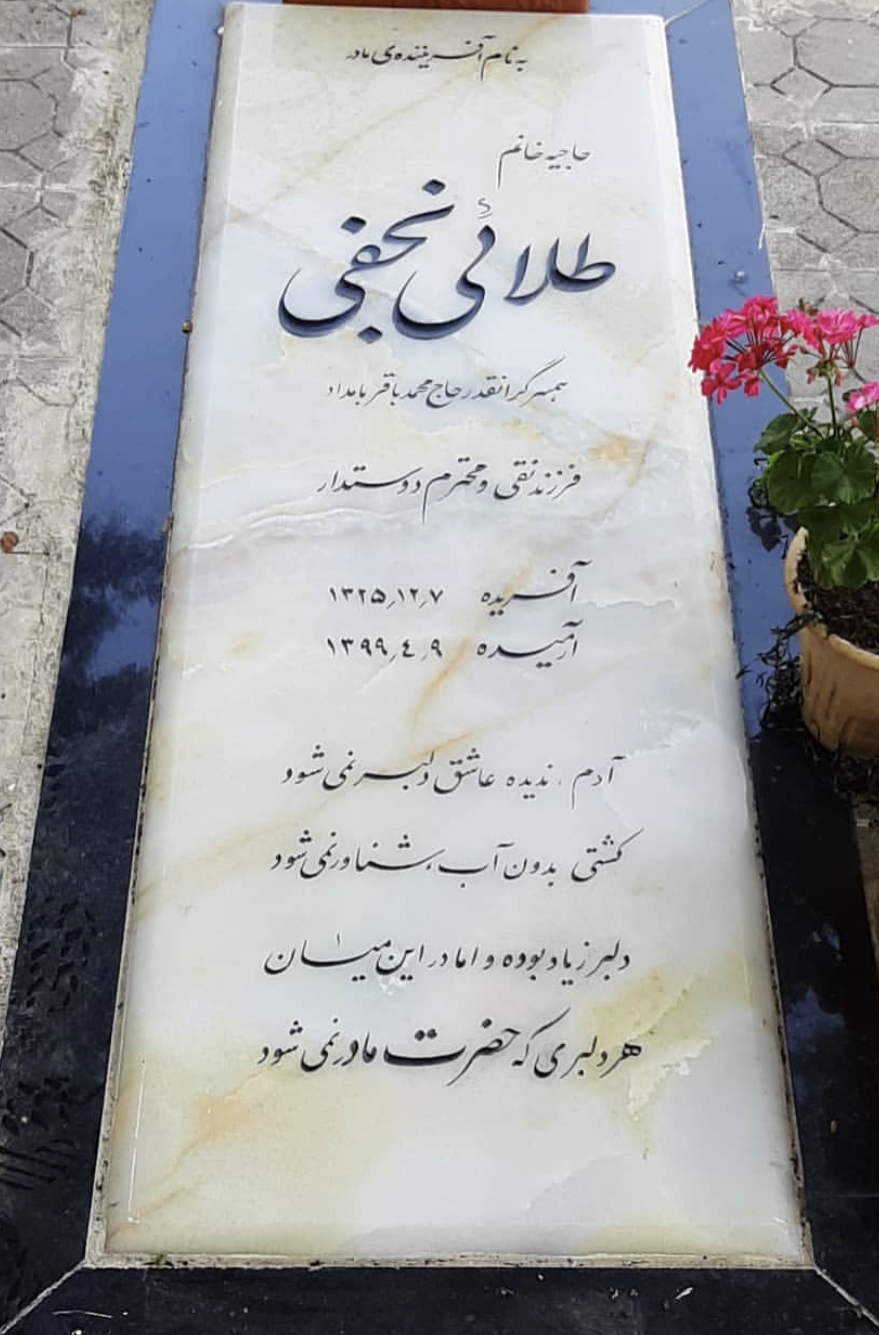 به نام آفریننده‌ی مادر
حاجیه خانم
طلائی نجفی
همسر گرانقدر حاج محمد باقر بامداد
فرزند نقی و محترم دوستدار
آفریده ۱۳۲۵٫۱۲٫۷
آرمیده ۱۳۹۹٫٤٫۹
آدم، ندیده عاشق دلبر نمی‌شود
کشتی بدون آب، شناور نمی‌شود
دلبر زیاد بوده و اما در این میان
هر دلبری که حضرت مادر نمی‌شود